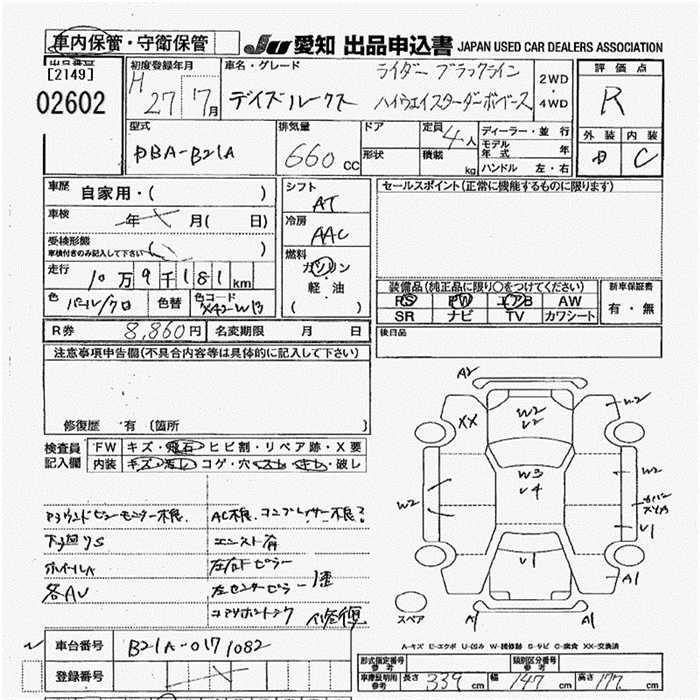 車内保管・守衛保管
JU 愛知 出品申込書 JAPAN USED CAR DEALERS ASSOCIATION
[2149]
02602
初度登録年月
H 27 7月
車名・グレード
デイズルークス
ライダー ブラックライン
ハイウェイスターターボベース
2WD
・
4WD
評価点
R
外装 内装
C
型式
DBA-B21A
排気量
660 CC
ドア
形状
定員 4人
積載 kg
ディーラー・並行
モデル年式 年
ハンドル 左・右
車歴 自家用・( )
車検 年 月( 日)
受検形態
車検付きのみ記入して下さい
走行 10万9千181km
色 パール/クロ 色替 色コード
シフト AT
冷房 AAC
燃料
ガソリン
軽・油
( )
セールスポイント(正常に機能するものに限ります)
装備品(純正品に限り〇をつけてください)
PS PW エアB AW
SR ナビ TV カワシート
新車保証書
有・無
R券 8,860円 名変期限 月 日
後日品
注意事項申告欄(不具合内容等は具体的に記入して下さい)
修復歴 有 (箇所
検査員記入欄
FW キズ・飛石・ヒビ割・リペア跡・X要
内装 キズ・汚レ・コゲ・穴・スレ・キレ・破レ
アラウンドビューモニター不良 AC不良.コンプレッサー不良?
下廻りS エンスト有
ホイールA 左右Fピラー
各AU 左センターピラー
コアサポート 修復
A2
XX
W2
U2
W3
U4
U1
W2
W2
U1
A1
A1
スペア
A-キズ E-エクボ U-凹ル W-補修跡 S-サビ C-腐食 XX-交換済
車台番号 B21A-0171082
登録番号
形式指定番号
参考
類別区分番号
参考
車庫証明用
参考
長さ 339 cm 幅 147 cm 高さ 177 cm